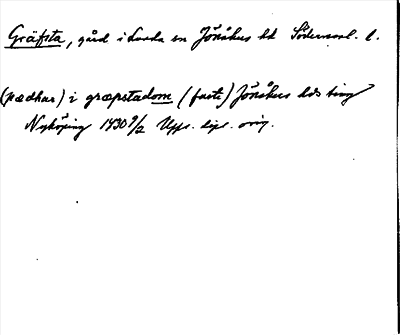 Gräfsta, gård i Lunda sn Jönåkers hd Södermanl. l.
(pædhar) i græpstadom (faste) Jönåkers hds ting
Nyköping 1430 9/2 Upps. dipl. orig.